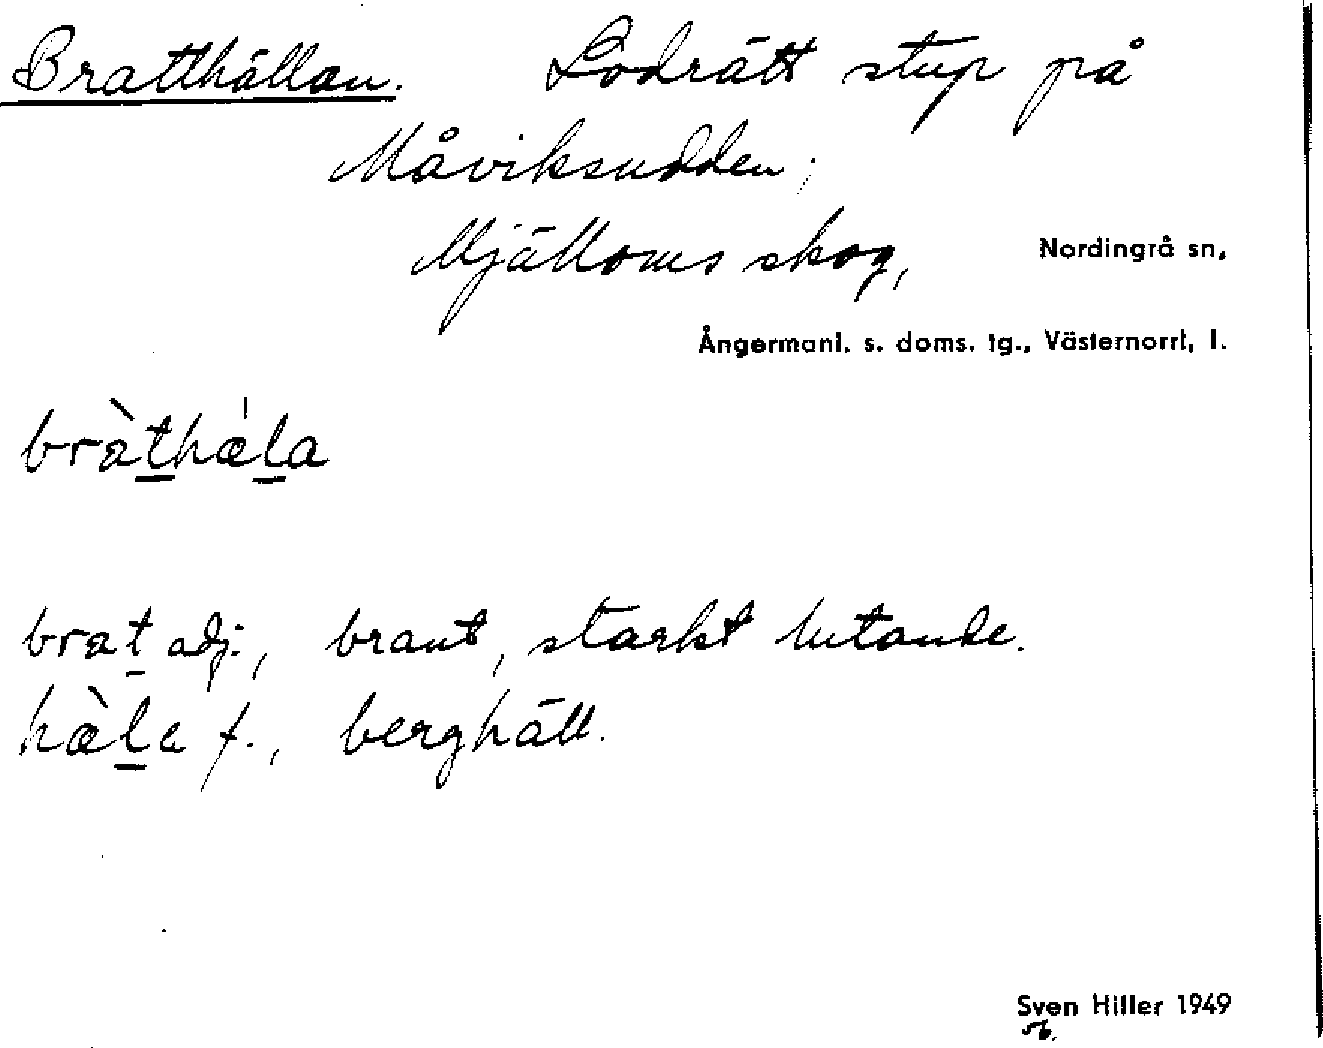 Bratthällan. Lodrätt stup på
Måviksudden;
Mjälloms skog, Nordingrå sn,
Ångermanl. s. doms. tg., Västernorrl. l.
bràt̲hæ̀l̲a
brat̲ adj., brant, starkt lutande.
hæ̀l̲a f., berghäll.
Sven Hiller 1949